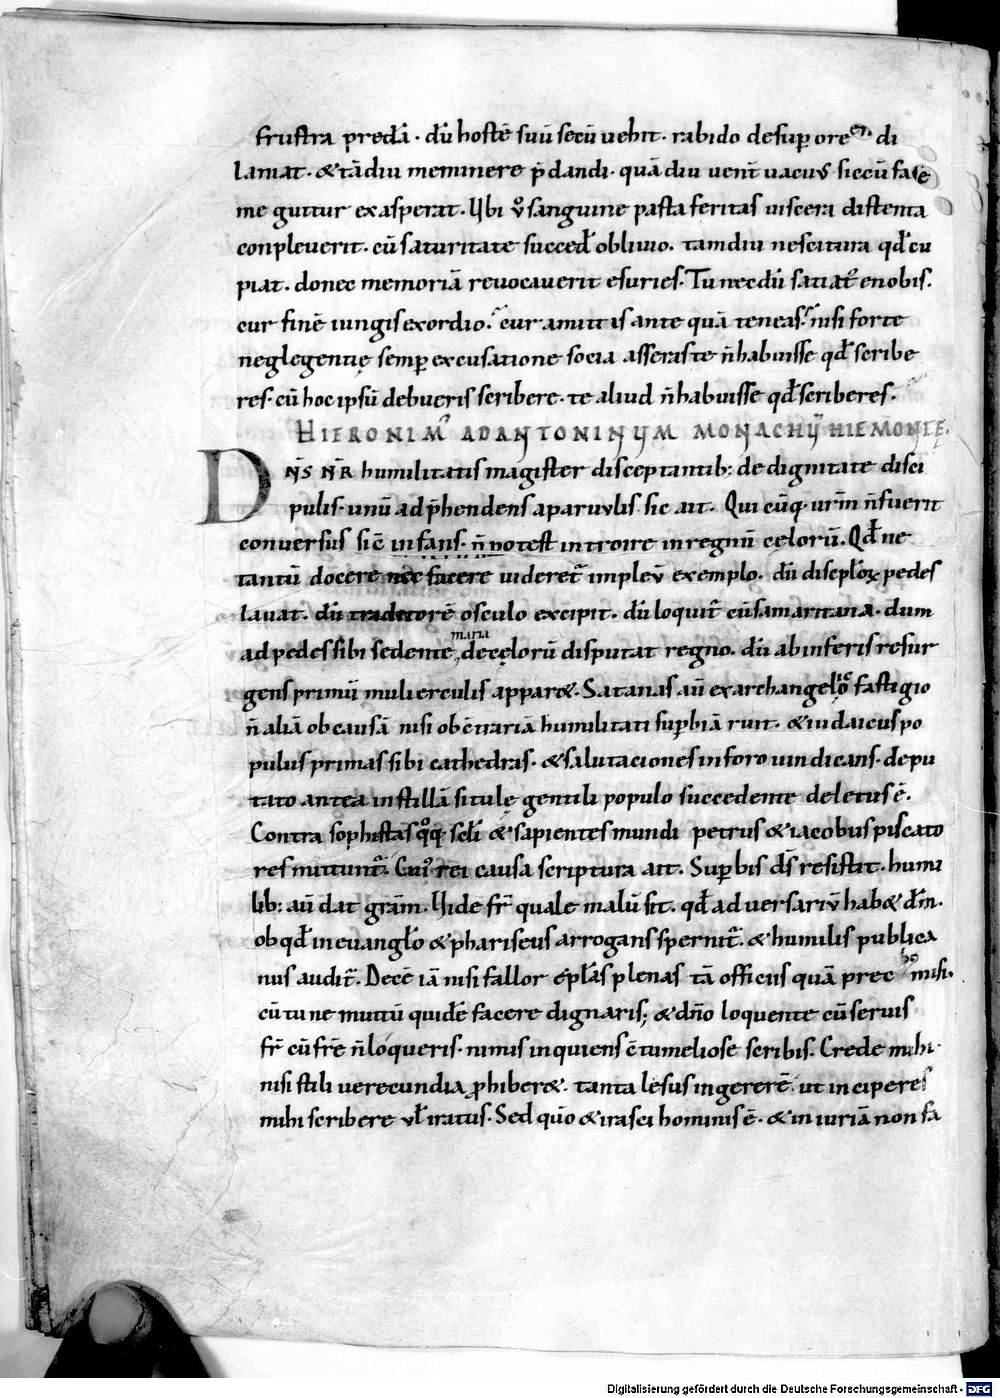 frustra predā · dū hostē suū secū uehit · rabido desuꝑ ore di
laniat · & tādiu meminere p̄dandi · quādiu uent̄ uacuus siccū fa
me guttur exasperat · Ubi v̊ sanguine pasta feritas uiscera distenta
conpleuerit · cū saturitate succed̄ obliuio · tamdiu nescitura qđ cu
piat · donec memoriā reuocauerit esuries · Tu necdū satiat᷒ enobis ·
cur finē iungis exordio · cur amittis ante quā teneas · nisi forte
neglegentię semꝑ excusatione socia asseras te n̄ habuisse qđ scribe
res · cū hoc ipsū debueris scribere · te aliud n̄ habuisse qđ scriberes ·
HIERONIM᷒ AD ANTONINUM MONACHŪ HIEMONĘ ·
DN̄S NR̄ humilitatis magister disceptantib; de dignitate disci
pulis · unū adp̄hendens aparuulis sic ait · Qui cūq· ur̄m n̄ fuerit
conuersus sic̄ infans · n̄ potest introire in regnū cęlorū · Qđ ne
tantū docere nec facere uideret᷒ impleu̅ exemplo · dū discpl̄oꝝ pedes
lauat · dū traditorē osculo excipit · dū loquit᷒ cū samaritana · dum
ad pedes sibi sedente maria de cęlorū disputat regno · dū ab inferis resur
gens primū mulierculis appar& · Satanas aū ex archangelico fastigio
n̄ aliā ob causā nisi ob c̄trariā humilitati suꝑbiā ruit · & iudaicus po
pulus primas sibi cathedras · & salutaciones in foro uindicans · depu
tato antea in stillā situlę gentili populo succedente deletus ē ·
Contra sophistas q̊q· scłi & sapientes mundi petrus & iacobus piscato
res mittunt᷒ · Cui᷒ rei causa scriptura ait · Suꝑbis dš resistit · humi
lib; aū dat grām · Uide fr̄ quale malū sit · qđ aduersariū hab& dm̄ ·
ob qđ in euanglo & phariseus arrogans spernit᷒ · & humilis publica
nus audit᷒ · Decē iā nisi fallor epłas plenas tā officiis quā prec misi ·
cū tu ne muttū quidē facere dignaris; & dn̄o loquente cū seruis
fr̄ cū fr̄e n̄ loqueris · nimis inquiens c̄tumeliose scribis · Crede mihi ·
nisi stili uerecundia ꝓhiber& · tanta lęsus ingererē · ut inciperes
mihi scribere vł iratus · Sed qūo & irasci hominis ē · & iniuriā non fa